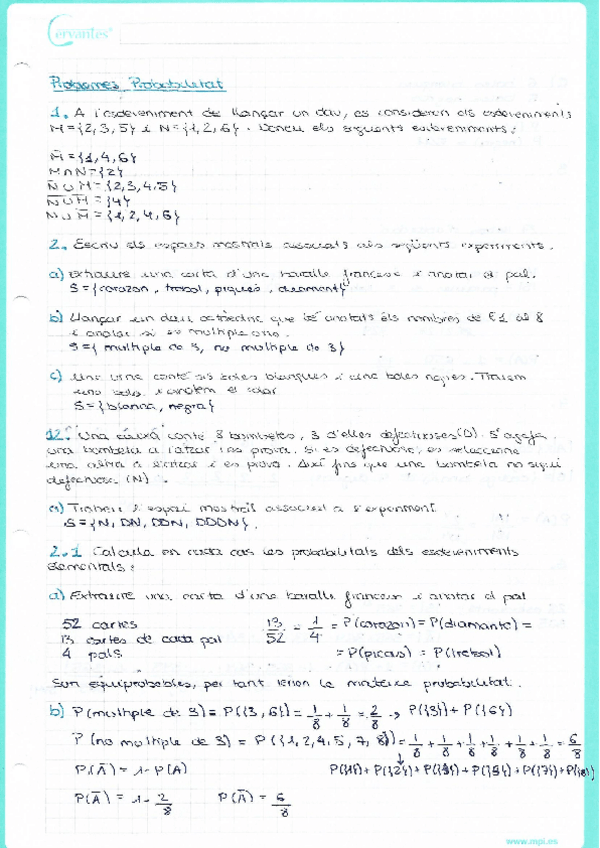 Cervantes
Problemes Probabilitat
1. A l'esdeveniment de llançar un dau, es consideren els esdeveniments
M = {2, 3, 5} i N = {1, 2, 6}. Doneu els següents esdeveniments:
M̅ = {1, 4, 6}
M∩N = {2}
N̅∪M = {2, 3, 4, 5}
N̅∪̅M̅ = {4}
N∪M̅ = {1, 2, 4, 6}
2. Escriu els espais mostrals associats als següents experiments.
a) Extraure una carta d'una baralla francesa i anotar el pal.
S = {corazon, trebol, piques, diamant}
b) Llançar un dau octaèdric que té anotats els nombres de l'1 al 8
i anotar si es multiple
S = { multiple de 3, no multiple de 3}
c) Una urna conté sis boles blanques i una boles negres. Traiem
una bola i anotem el color
S = {blanca, negra}
12. Una caixa conté 8 bombetes, 3 d'elles defectuoses (D). S'agafa
una bombeta a l'atzar i es prova. Si es defectuosa, es selecciona
una altra a l'atzar i es prova. Així fins que una bombeta no sigui
defectuosa (N).
a) Trobeu l'espai mostral associat a l'experiment
S = {N, DN, DDN, DDDN}.
2.1 Calcula en cada cas les probabilitats dels esdeveniments
elementals:
a) Extraure una carta d'una baralla francesa i anotar el pal
52 cartes 13/52 = 1/4 = P(corazon) = P(diamante) =
13 cartes de cada pal
4 pals = P(picas) = P(trebol)
Son equiprobables, per tant tenen la mateixa probabilitat.
b) P(multiple de 3) = P({3, 6}) = 1/8 + 1/8 = 2/8 → P({3}) + P({6})
P(no multiple de 3) = P({1, 2, 4, 5, 7, 8}) = 1/8 + 1/8 + 1/8 + 1/8 + 1/8 + 1/8 = 6/8
P(A̅) = 1 - P(A) P({1}) + P({2}) + P({4}) + P({5}) + P({7}) + P({8})
P(A̅) = 1 - 2/8 P(A̅) = 6/8
www.mpi.es